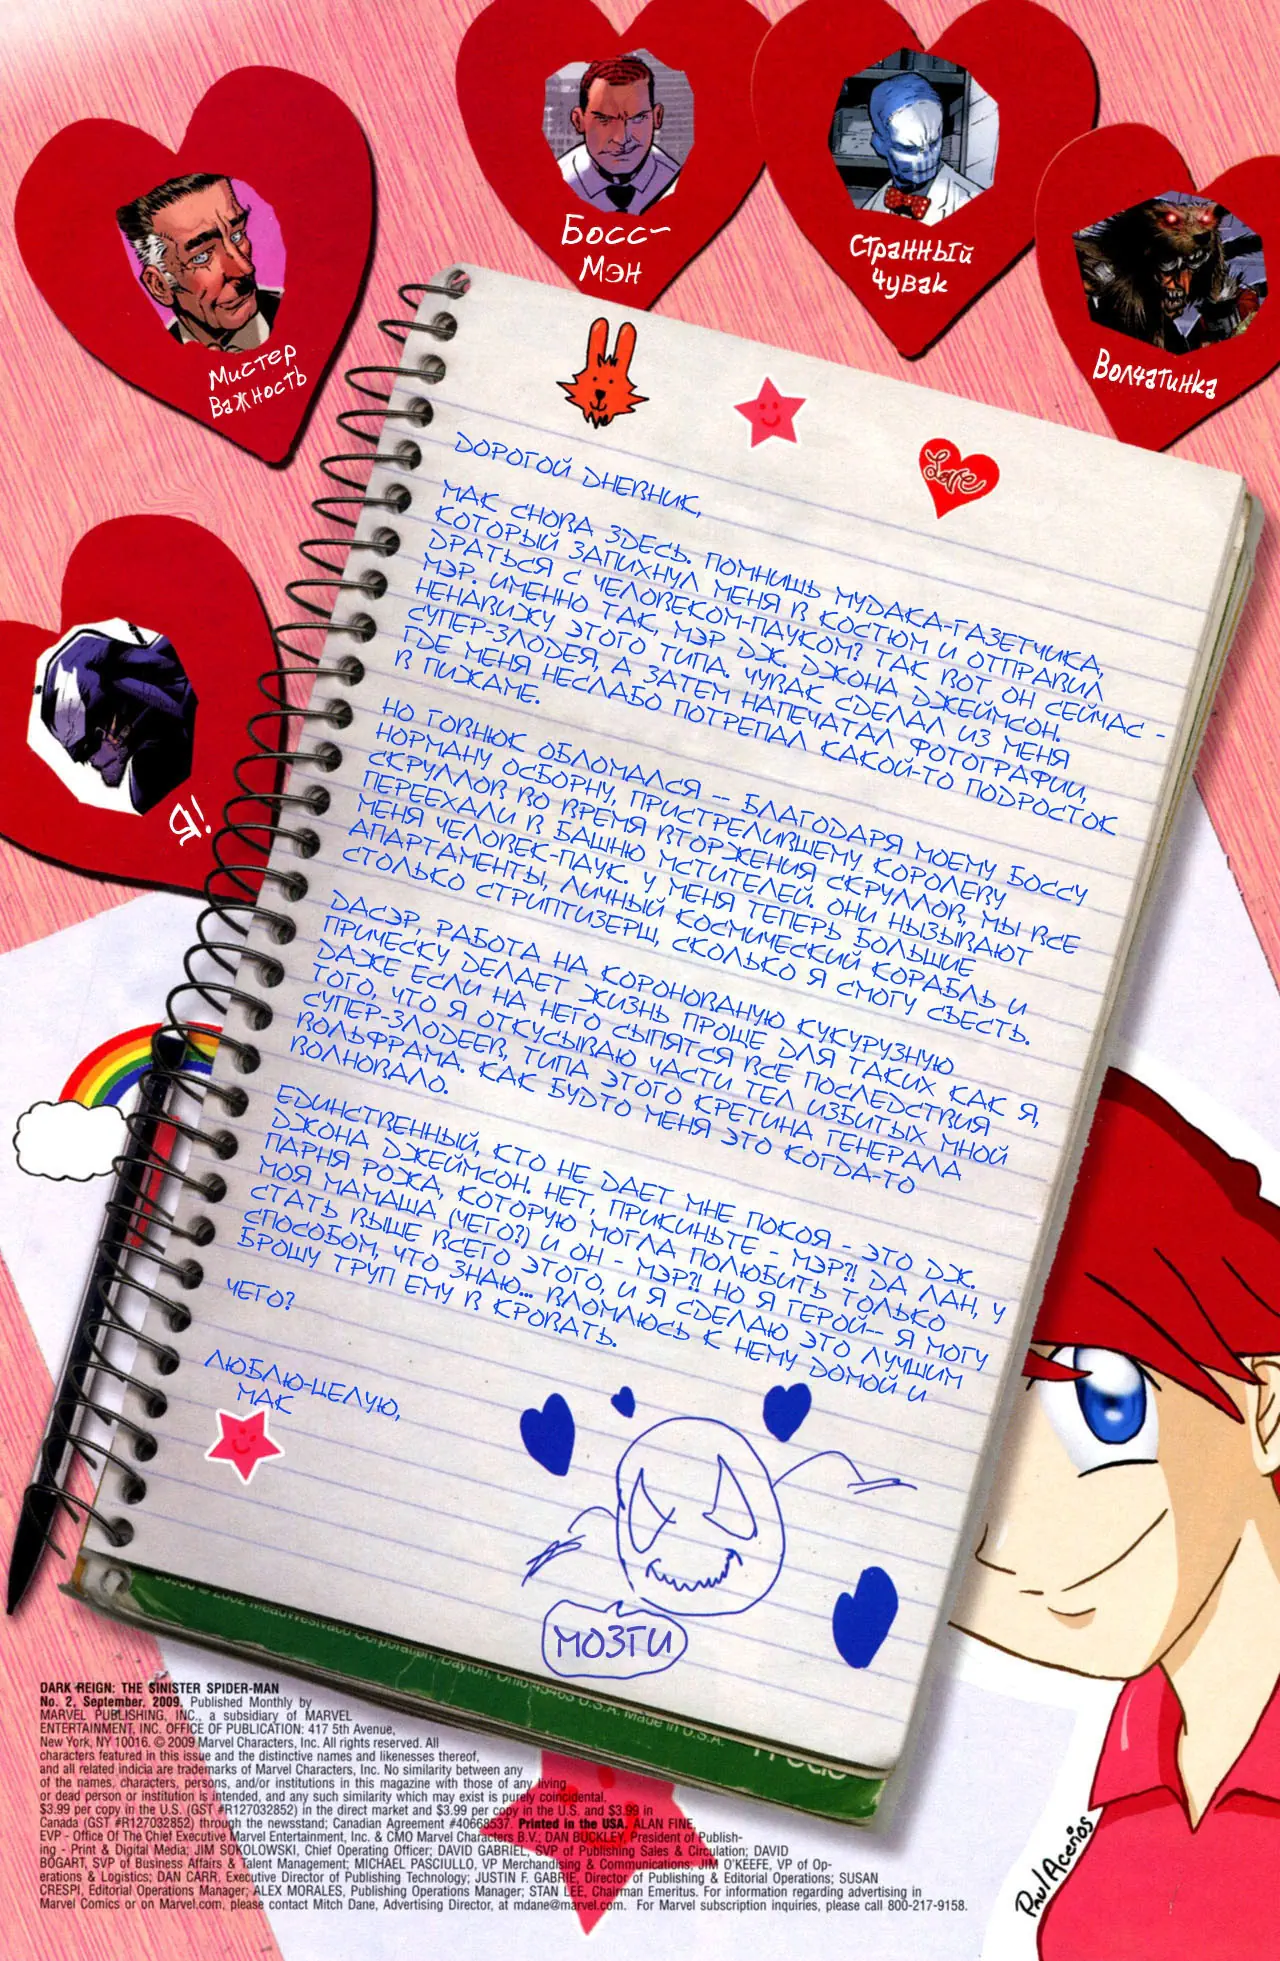 Мистер
Важность
Босс-
Мэн
Странный
чувак
Волчатинка
Я!
Love
ДОРОГОЙ ДНЕВНИК,
МАК СНОВА ЗДЕСЬ. ПОМНИШЬ МУДАКА-ГАЗЕТЧИКА,
КОТОРЫЙ ЗАПИХНУЛ МЕНЯ В КОСТЮМ И ОТПРАВИЛ
ДРАТЬСЯ С ЧЕЛОВЕКОМ-ПАУКОМ? ТАК ВОТ ОН СЕЙЧАС -
МЭР. ИМЕННО ТАК, МЭР ДЖ. ДЖОНА ДЖЕЙМСОН.
НЕНАВИЖУ ЭТОГО ТИПА. ЧУВАК СДЕЛАЛ ИЗ МЕНЯ
СУПЕР-ЗЛОДЕЯ, А ЗАТЕМ НАПЕЧАТАЛ ФОТОГРАФИИ,
ГДЕ МЕНЯ НЕСЛАБО ПОТРЕПАЛ КАКОЙ-ТО ПОДРОСТОК
В ПИЖАМЕ.
НО ГОВНЮК ОБЛОМАЛСЯ -- БЛАГОДАРЯ МОЕМУ БОССУ
НОРМАНУ ОСБОРНУ, ПРИСТРЕЛИВШЕМУ КОРОЛЕВУ
СКРУЛЛОВ ВО ВРЕМЯ ВТОРЖЕНИЯ СКРУЛЛОВ, МЫ ВСЕ
ПЕРЕЕХАЛИ В БАШНЮ МСТИТЕЛЕЙ. ОНИ НЫЗЫВАЮТ
МЕНЯ ЧЕЛОВЕК-ПАУК. У МЕНЯ ТЕПЕРЬ БОЛЬШИЕ
АПАРТАМЕНТЫ, ЛИЧНЫЙ КОСМИЧЕСКИЙ КОРАБЛЬ И
СТОЛЬКО СТРИПТИЗЕРШ, СКОЛЬКО Я СМОГУ СЪЕСТЬ.
ДАСЭР, РАБОТА НА КОРОНОВАНУЮ КУКУРУЗНУЮ
ПРИЧЕСКУ ДЕЛАЕТ ЖИЗНЬ ПРОЩЕ ДЛЯ ТАКИХ КАК Я,
ДАЖЕ ЕСЛИ НА НЕГО СЫПЯТСЯ ВСЕ ПОСЛЕДСТВИЯ
ТОГО, ЧТО Я ОТКУСЫВАЮ ЧАСТИ ТЕЛ ИЗБИТЫХ МНОЙ
СУПЕР-ЗЛОДЕЕВ, ТИПА ЭТОГО КРЕТИНА ГЕНЕРАЛА
ВОЛЬФРАМА. КАК БУДТО МЕНЯ ЭТО КОГДА-ТО
ВОЛНОВАЛО.
ЕДИНСТВЕННЫЙ, КТО НЕ ДАЕТ МНЕ ПОКОЯ - ЭТО ДЖ.
ДЖОНА ДЖЕЙМСОН. НЕТ, ПРИКИНЬТЕ - МЭР?! ДА ЛАН, У
ПАРНЯ РОЖА, КОТОРУЮ МОГЛА ПОЛЮБИТЬ ТОЛЬКО
МОЯ МАМАША (ЧЕГО?) И ОН - МЭР?! НО Я ГЕРОЙ-- Я МОГУ
СТАТЬ ВЫШЕ ВСЕГО ЭТОГО, И Я СДЕЛАЮ ЭТО ЛУЧШИМ
СПОСОБОМ, ЧТО ЗНАЮ... ВЛОМЛЮСЬ К НЕМУ ДОМОЙ И
БРОШУ ТРУП ЕМУ В КРОВАТЬ.
ЧЕГО?
ЛЮБЛЮ-ЦЕЛУЮ,
МАК
МОЗГИ
© 2002 MeadWestvaco Corporation, Dayton, Ohio 45463 U.S.A. Made in U.S.A.
DARK REIGN: THE SINISTER SPIDER-MAN
No. 2, September, 2009. Published Monthly by
MARVEL PUBLISHING, INC., a subsidiary of MARVEL
ENTERTAINMENT, INC. OFFICE OF PUBLICATION: 417 5th Avenue,
New York, NY 10016. © 2009 Marvel Characters, Inc. All rights reserved. All
characters featured in this issue and the distinctive names and likenesses thereof,
and all related indicia are trademarks of Marvel Characters, Inc. No similarity between any
of the names, characters, persons, and/or institutions in this magazine with those of any living
or dead person or institution is intended, and any such similarity which may exist is purely coincidental.
$3.99 per copy in the U.S. (GST #R127032852) in the direct market and $3.99 per copy in the U.S. and $3.99 in
Canada (GST #R127032852) through the newsstand; Canadian Agreement #40668537. Printed in the USA. ALAN FINE,
EVP - Office Of The Chief Executive Marvel Entertainment, Inc. & CMO Marvel Characters B.V.; DAN BUCKLEY, President of Publish-
ing - Print & Digital Media; JIM SOKOLOWSKI, Chief Operating Officer; DAVID GABRIEL, SVP of Publishing Sales & Circulation; DAVID
BOGART, SVP of Business Affairs & Talent Management; MICHAEL PASCIULLO, VP Merchandising & Communications; JIM O'KEEFE, VP of Op-
erations & Logistics; DAN CARR, Executive Director of Publishing Technology; JUSTIN F. GABRIE, Director of Publishing & Editorial Operations; SUSAN
CRESPI, Editorial Operations Manager; ALEX MORALES, Publishing Operations Manager; STAN LEE, Chairman Emeritus. For information regarding advertising in
Marvel Comics or on Marvel.com, please contact Mitch Dane, Advertising Director, at mdane@marvel.com. For Marvel subscription inquiries, please call 800-217-9158.
Paul Acerios